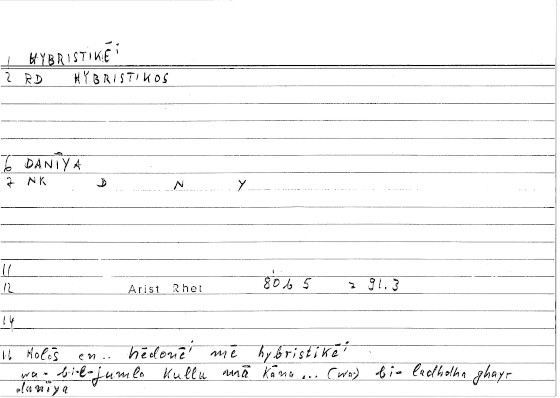 1 HYBRISTIKĒⁱ
2 RD HYBRISTIKOS
6 DANĪYA
7 NK D N Y
11
12 Arist Rhet 80b5 = 91.3
14
16 Holōs en.. hēdonēⁱ mē hybristikēⁱ
wa-bi-l-jumla kullu mā kāna... (wa) bi-ladhdha ghayr
danīya